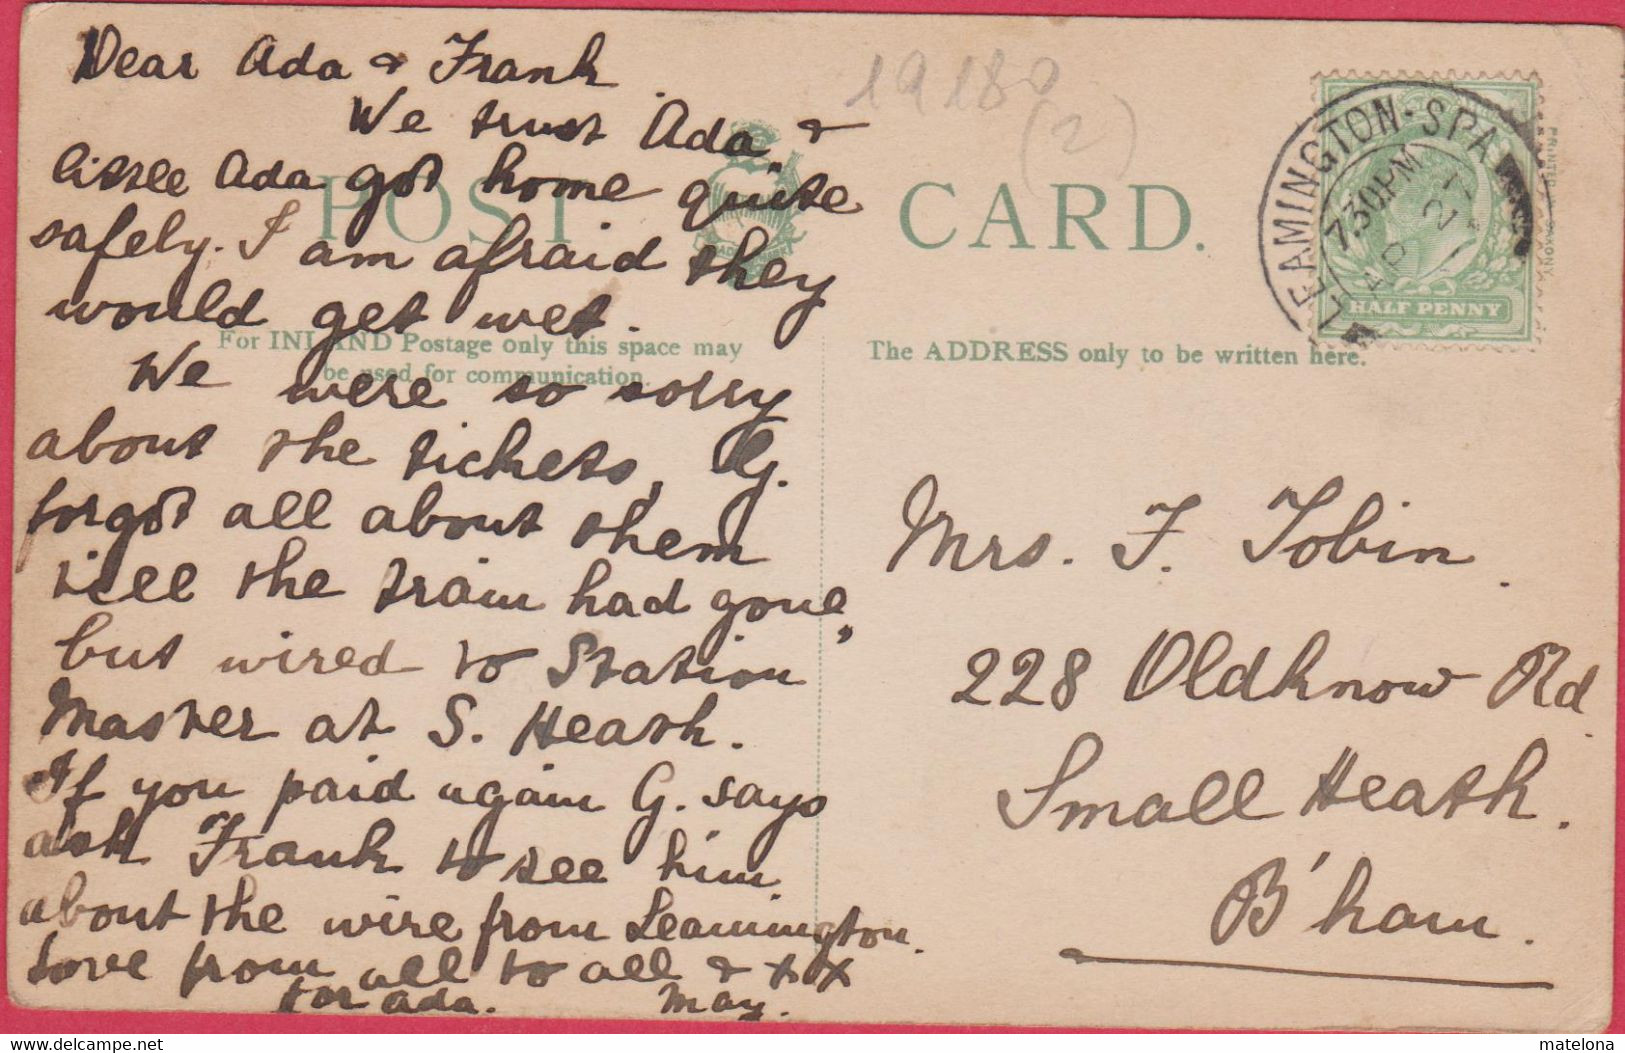 Dear Ada & Frank
We trust Ada &
little Ada got home quite
safely. I am afraid they
would get wet.
We were so sorry
about the tickets, G.
forgot all about them
till the train had gone,
but wired to Station
Master at S. Heath.
If you paid again G. says
ask Frank to see him
about the wire from Leamington.
Love from all to all & x x x
for Ada. May.
19180
(2)
POST CARD.
For INLAND Postage only this space may
be used for communication.
The ADDRESS only to be written here.
LEAMINGTON-SPA
7.30 PM
AP 21
11
HALF PENNY
PRINTED IN SAXONY
Mrs. F. Tobin.
228 Oldknow Rd.
Small Heath.
B'ham.
www.delcampe.net
matelona